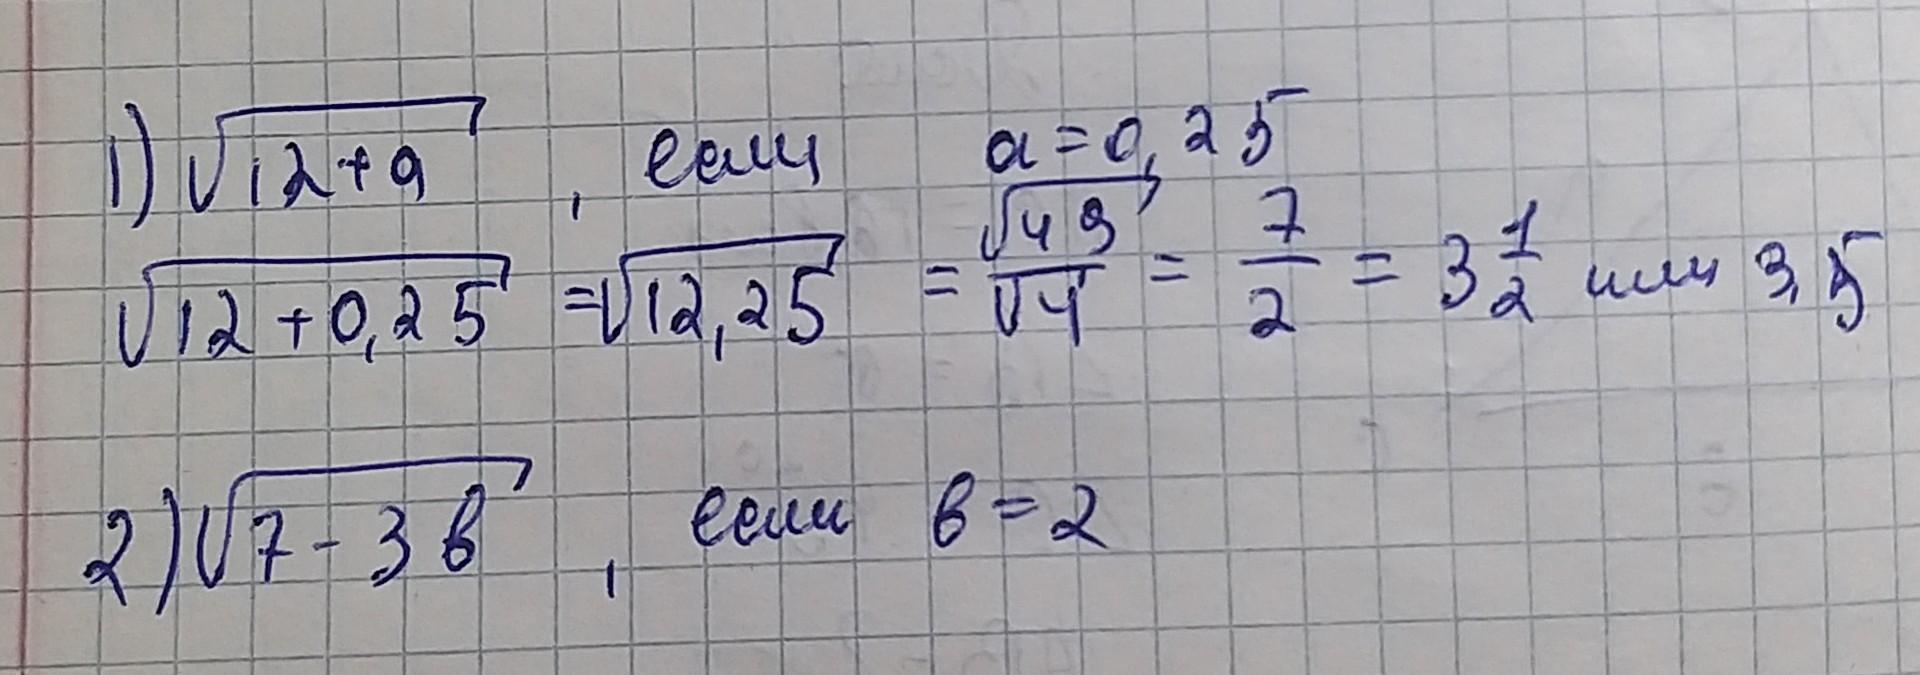 1) √12+a , если a=0,25
√12+0,25 =√12,25 = √49/√4 = 7/2 = 3 1/2 или 3,5
2) √7-3в , если в=2